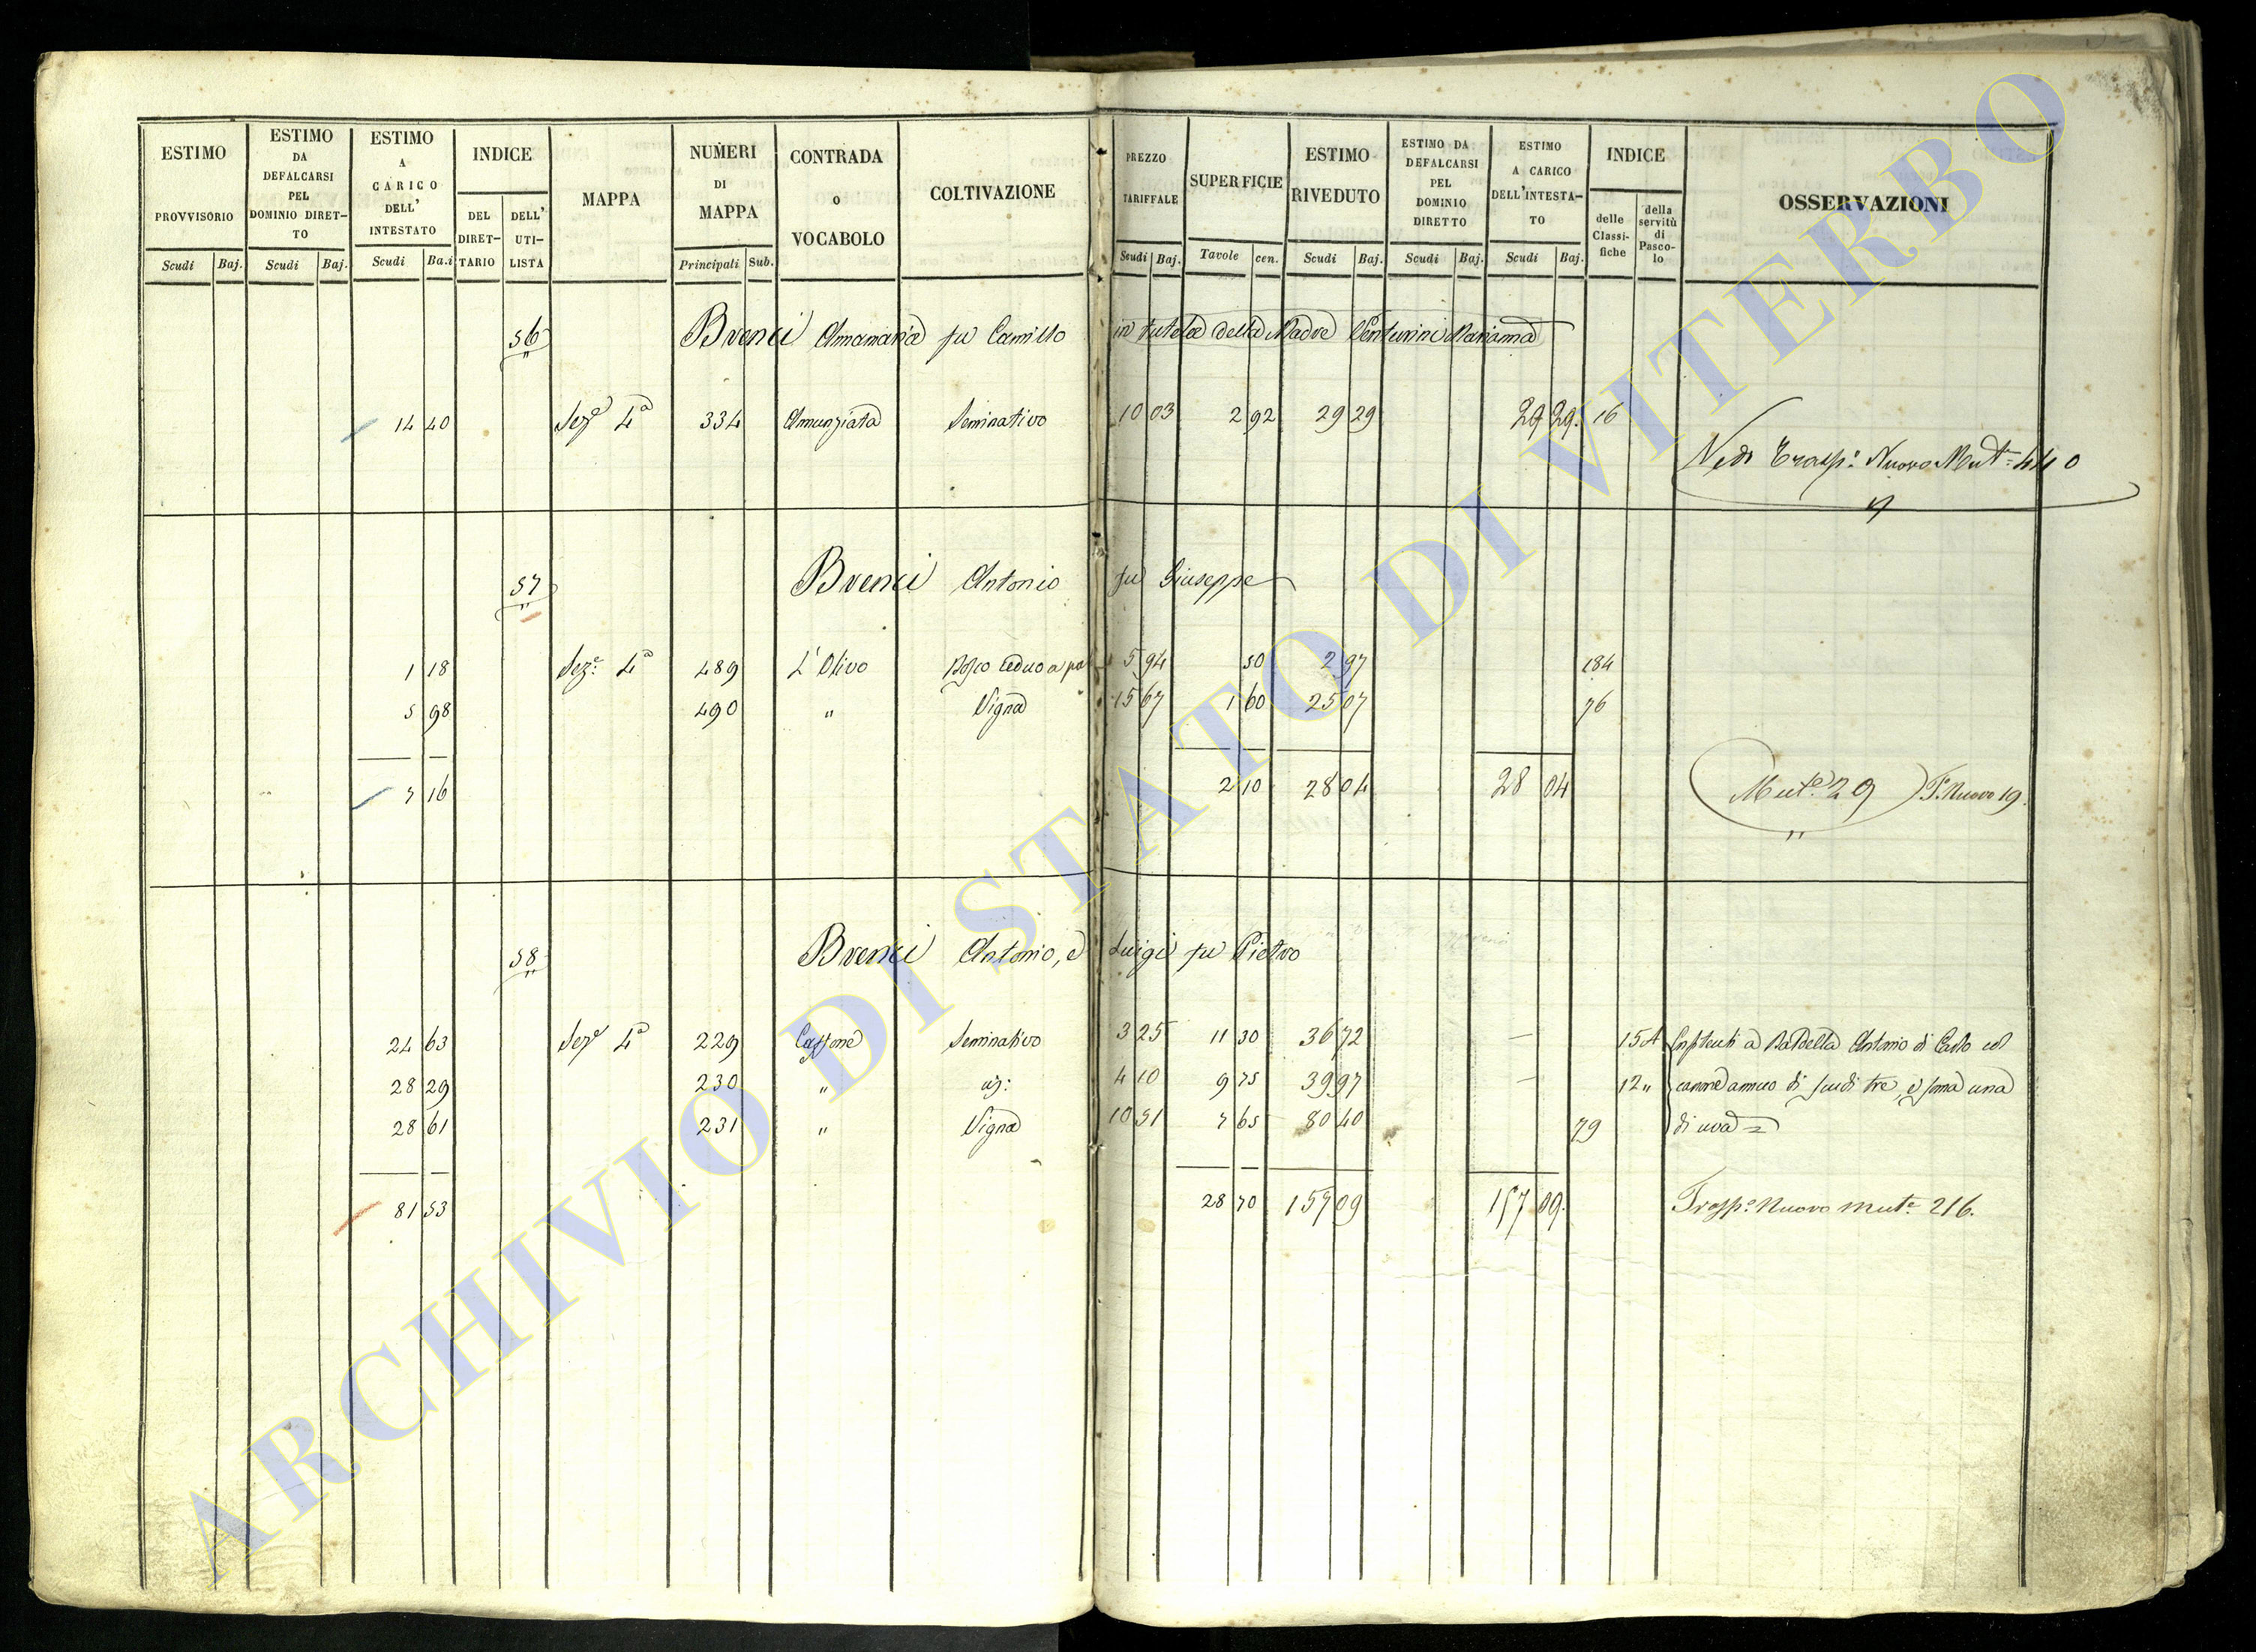 ESTIMO PROVVISORIO Scudi Baj.
ESTIMO DA DEFALCARSI PEL DOMINIO DIRET-TO Scudi Baj.
ESTIMO A CARICO DELL' INTESTATO Scudi Ba.i
INDICE DEL DIRET-TARIO DELL' UTI-LISTA
MAPPA
NUMERI DI MAPPA Principali Sub.
CONTRADA O VOCABOLO
COLTIVAZIONE
PREZZO TARIFFALE Scudi Baj.
SUPERFICIE Tavole cen.
ESTIMO RIVEDUTO Scudi Baj.
ESTIMO DA DEFALCARSI PEL DOMINIO DIRETTO Scudi Baj.
ESTIMO A CARICO DELL'INTESTA-TO Scudi Baj.
INDICE delle Classi-fiche della servitù di Pasco-lo
OSSERVAZIONI
56 Brenci Annamaria fu Camillo in tutela della Madre Venturini Marianna
14 40 Sez.e 4a 334 Annunziata Seminativo 10 03 2 92 29 29 29 29. 16
Vedi Trasp.o Nuovo Mut.e 440
57 Brenci Antonio fu Giuseppe
1 18 Sez.e 4a 489 L'Olivo Bosco ceduo a pa 5 94 50 2 97 184
5 98 490 " Vigna 15 67 1 60 25 07 76
7 16 2 10 28 04 28 04 Mut.e 29 T. Nuovo 19.
58 Brenci Antonio, e Luigi fu Pietro
24 63 Sez.e 4a 229 Cassone Seminativo 3 25 11 30 36 72 — 154 Enfiteuti a Bardella Antonio di Carlo col
28 29 230 " id: 4 10 9 75 39 97 — 12" canone annuo di scudi tre, e soma una
28 61 231 " Vigna 10 51 7 65 80 40 79 di uva =
81 53 28 70 157 09 157 09. Trasp.o Nuovo Mut.e 216.
ARCHIVIO DI STATO DI VITERBO